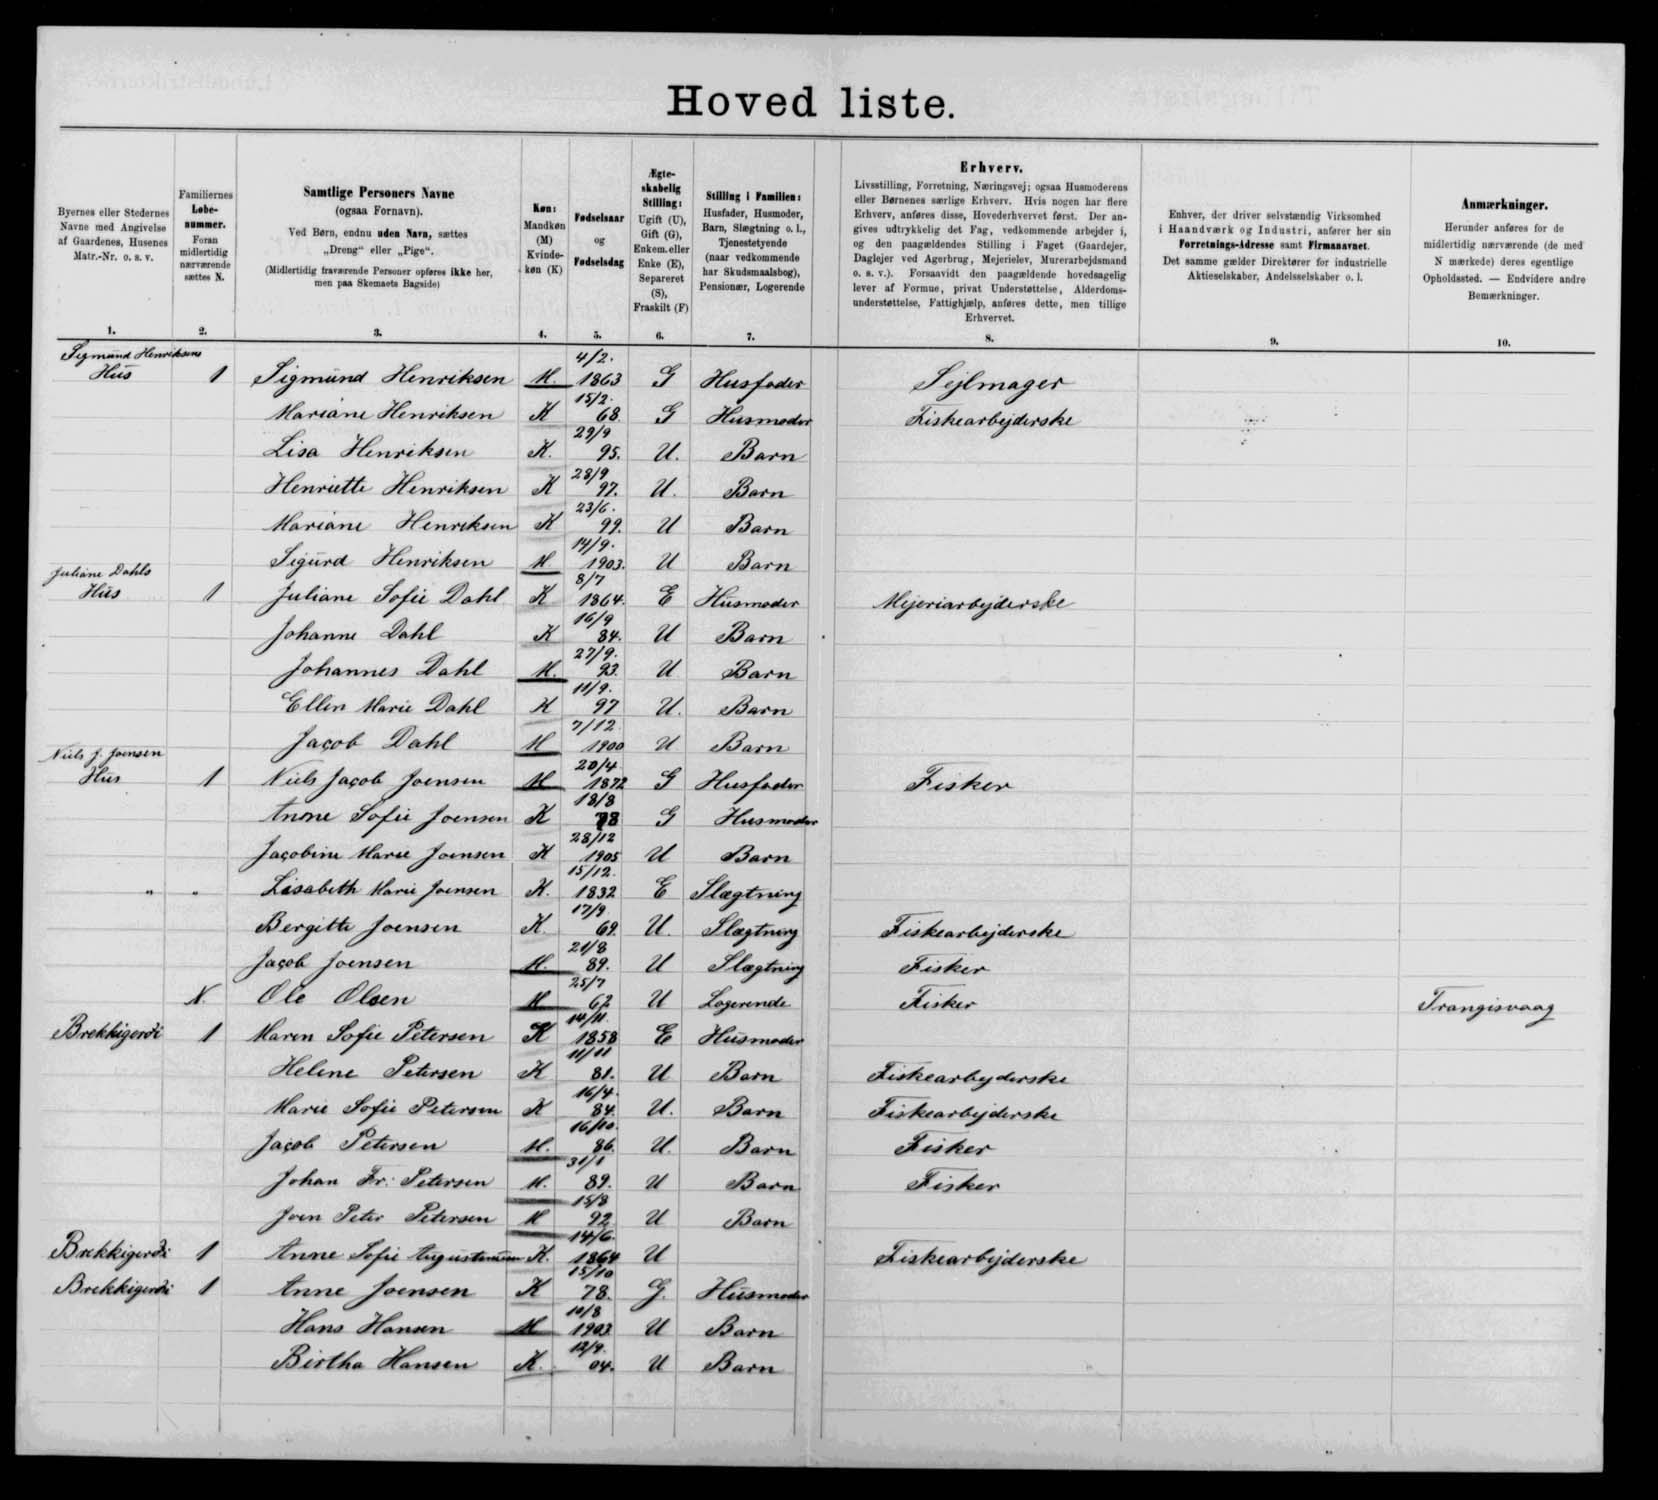 Hoved liste.
Byernes eller Stedernes Navne med Angivelse af Gaardenes, Husenes Matr.-Nr. o. s. v.
Familiernes Løbenummer. Foran midlertidig nærværende sættes N.
Samtlige Personers Navne (ogsaa Fornavn). Ved Børn, endnu uden Navn, sættes „Dreng“ eller „Pige“. (Midlertidig fraværende Personer opføres ikke her, men paa Skemaets Bagside)
Køn: Mandkøn (M) Kvindekøn (K)
Fødselsaar og Fødselsdag
Ægteskabelig Stilling: Ugift (U), Gift (G), Enkem. eller Enke (E), Separeret (S), Fraskilt (F)
Stilling i Familien: Husfader, Husmoder, Barn, Slægtning o. l., Tjenestetyende (naar vedkommende har Skudsmaalsbog), Pensionær, Logerende
Erhverv. Livsstilling, Forretning, Næringsvej; ogsaa Husmoderens eller Børnenes særlige Erhverv. Hvis nogen har flere Erhverv, anføres disse, Hovederhvervet først. Der angives udtrykkelig det Fag, vedkommende arbejder i, og den paagældendes Stilling i Faget (Gaardejer, Daglejer ved Agerbrug, Mejerielev, Murerarbejdsmand o. s. v.). Forsaavidt den paagældende hovedsagelig lever af Formue, privat Understøttelse, Alderdomsunderstøttelse, Fattighjælp, anføres dette, men tillige Erhvervet.
Enhver, der driver selvstændig Virksomhed i Haandværk og Industri, anfører her sin Forretnings-Adresse samt Firmanavnet. Det samme gælder Direktører for industrielle Aktieselskaber, Andelsselskaber o. l.
Anmærkninger. Herunder anføres for de midlertidig nærværende (de med N mærkede) deres egentlige Opholdssted. — Endvidere andre Bemærkninger.
1. 2. 3. 4. 5. 6. 7. 8. 9. 10.
Sigmund Henriksens Hus 1 Sigmund Henriksen M. 4/2. 1863 G Husfader Sejlmager
Mariane Henriksen K 15/2. 68 G Husmoder Fiskearbejderske
Lisa Henriksen K. 29/9 95. U. Barn
Henriette Henriksen K 28/9 97. U. Barn
Mariane Henriksen K 23/6. 99. U Barn
Sigurd Henriksen M 14/9. 1903. U Barn
Juliane Dahls Hus 1 Juliane Sofie Dahl K 8/7 1864. E Husmoder Mejeriarbejderske
Johanne Dahl K 16/9 84. U Barn
Johannes Dahl M. 27/9. 93. U Barn
Ellen Marie Dahl K 11/9. 97 U. Barn
Jacob Dahl M 7/12 1900 U Barn
Niels J. Joensen Hus 1 Niels Jacob Joensen M 20/4 1872 G Husfader Fisker
Anne Sofie Joensen K 18/8 78 G Husmoder
Jacobine Marie Joensen K 28/12 1905 U Barn
" " Lisabeth Marie Joensen K. 15/12. 1832 E Slægtning
Bergitte Joensen K. 17/9. 69. U. Slægtning Fiskearbejderske
Jacob Joensen M. 21/8 89. U Slægtning Fisker
N. Ole Olsen M 25/7 62 U Logerende Fisker Trangisvaag
Brekkigerdi 1 Maren Sofie Petersen K 14/11. 1858 E Husmoder
Helene Petersen K 11/11 81. U Barn Fiskearbejderske
Marie Sofie Petersen K 16/4. 84. U. Barn Fiskearbejderske
Jacob Petersen M. 16/10. 86. U. Barn Fisker
Johan Fr. Petersen M. 31/1 89. U Barn Fisker
Joen Peter Petersen M 15/8 92 U Barn
Brekkigerdi 1 Anne Sofie Augustinussen K. 14/6. 1864 U Fiskearbejderske
Brekkigerdi 1 Anne Joensen K 15/10 78. G. Husmoder
Hans Hansen M 10/8 1903 U Barn
Birtha Hansen K. 12/9. 04. U Barn